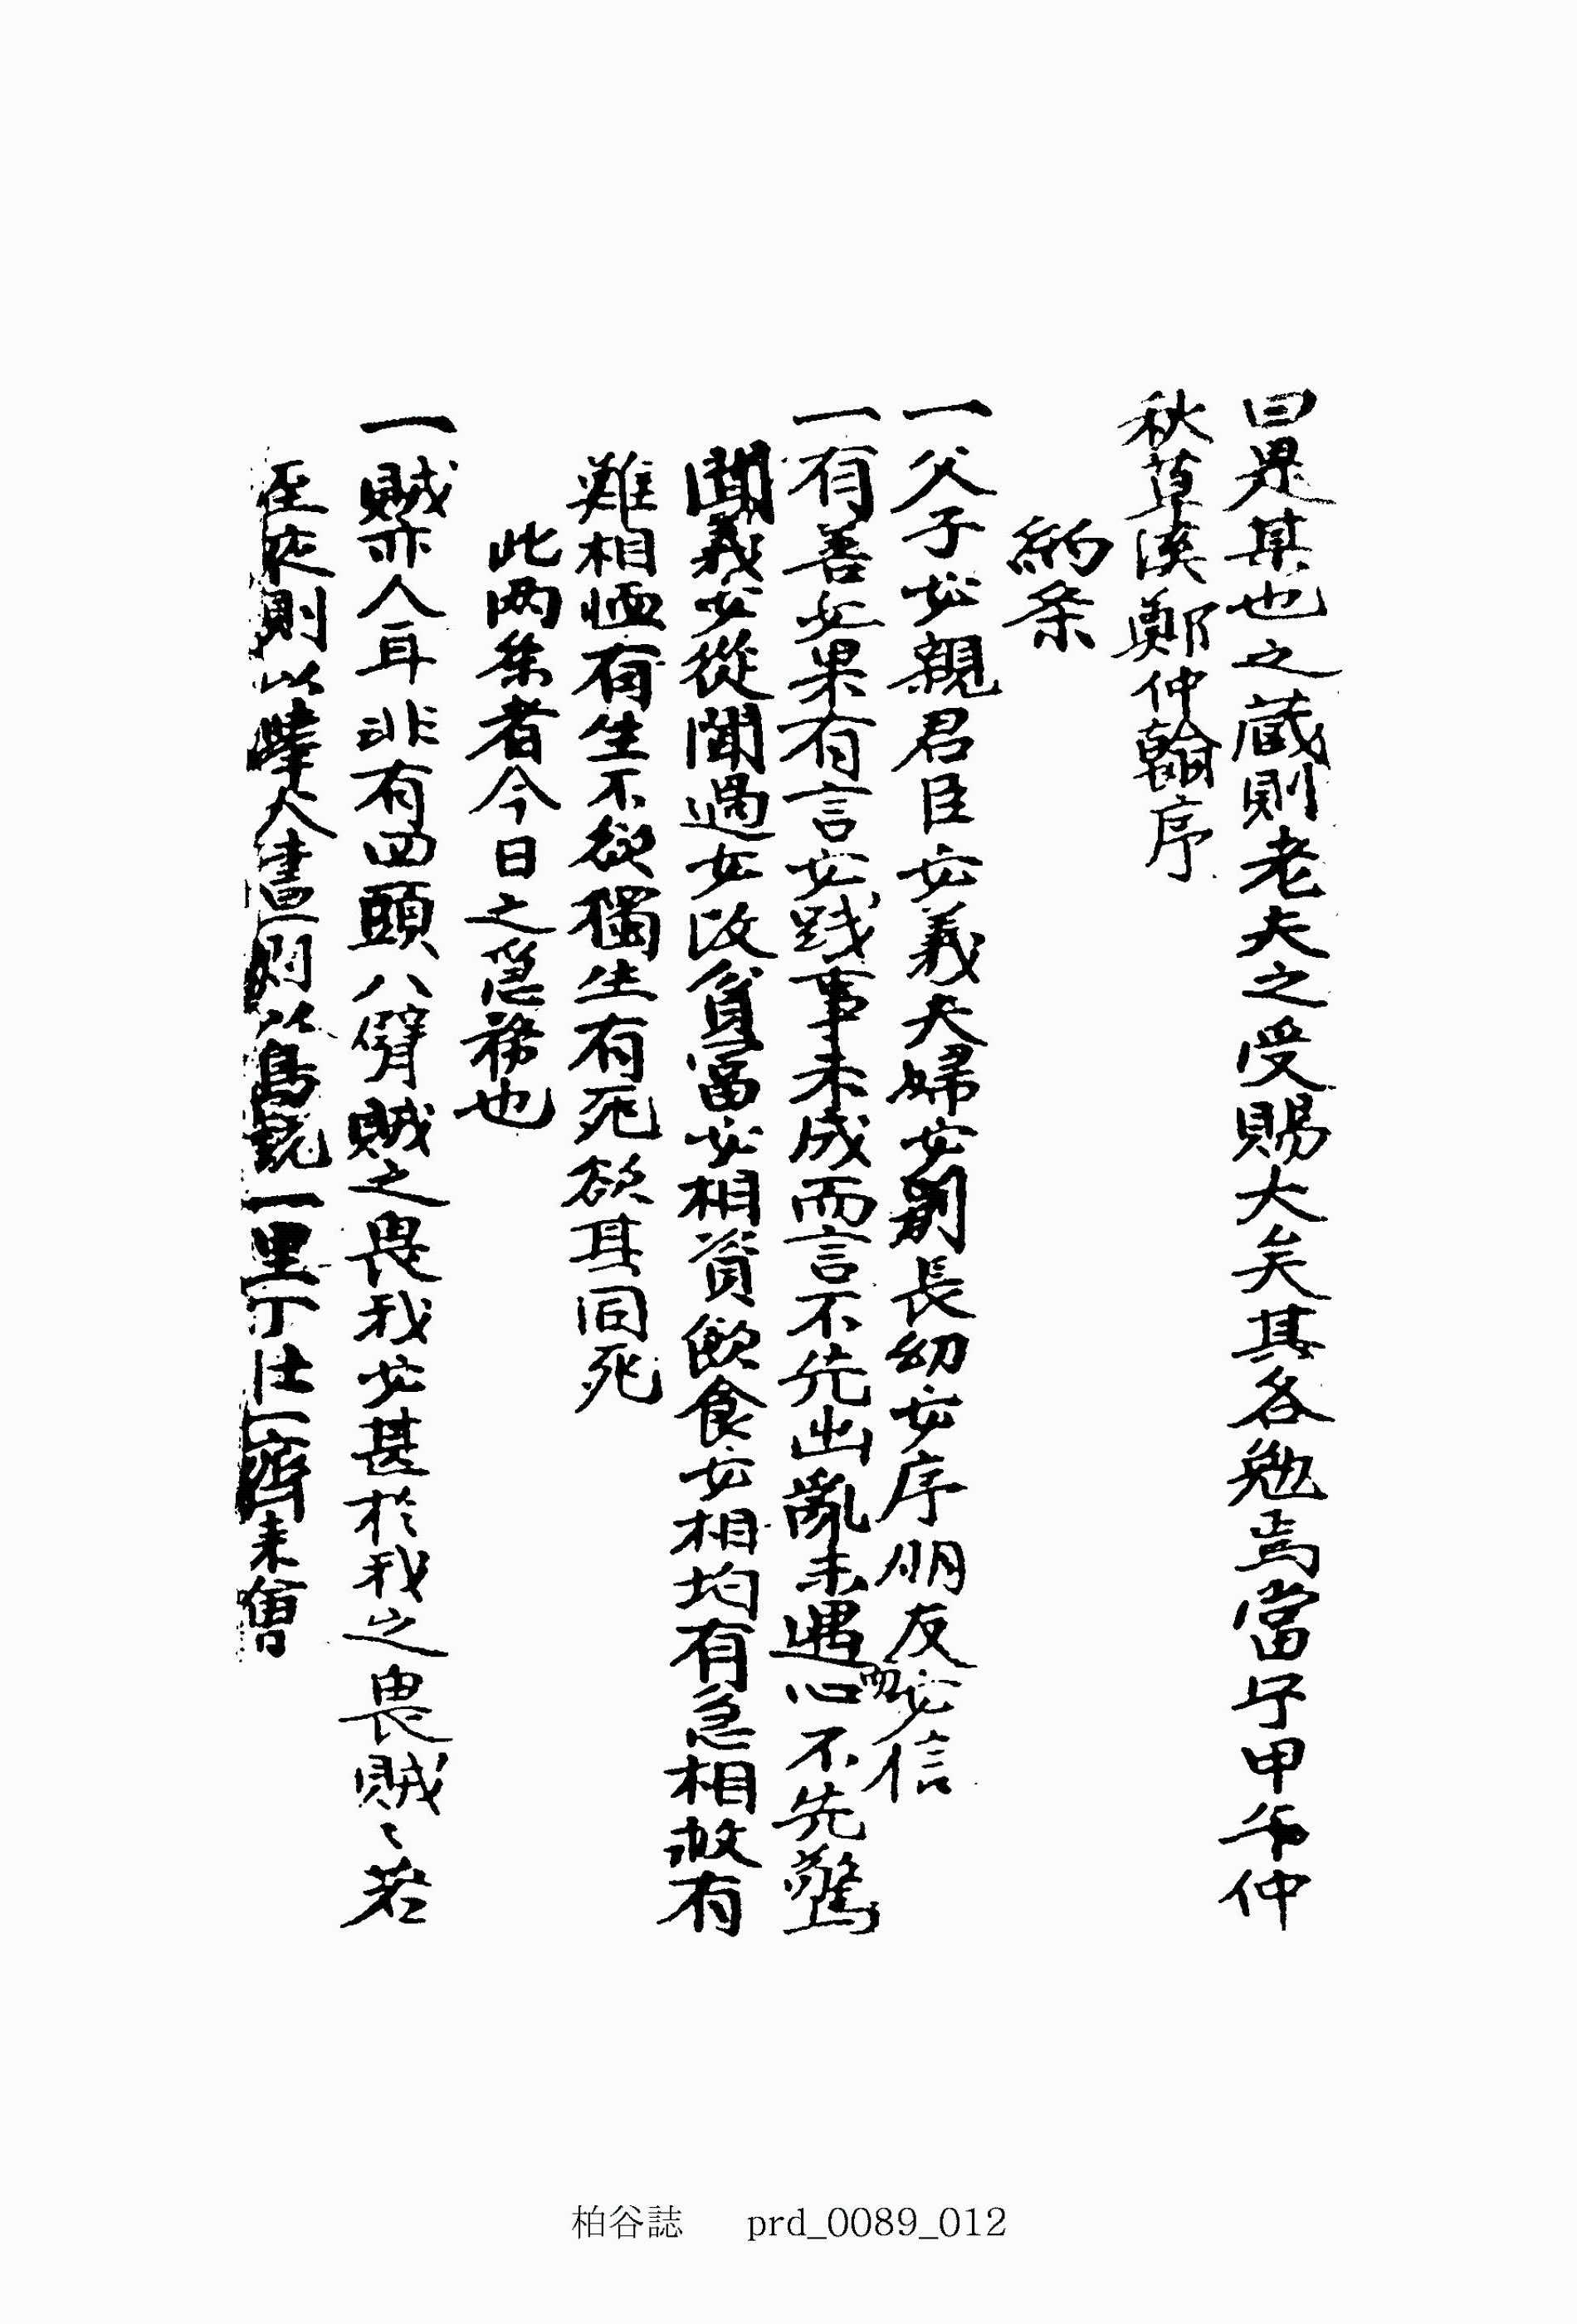 曰是某也之蔵則老夫之受賜大矣其各勉焉當予甲午仲
秋草溪鄭仲翰序
約条
一父子必親君臣必義夫婦必別長幼必序朋友必信
一有善必果有言必践事未成而言不先出亂未遇而心不先驚
聞義必從聞過必改貧富必相資飲食必相均有急相救有
難相恤有生不欲獨生有死欲其同死
此两条者今日之急務也
一賊亦人耳非有四頭八臂賊之畏我必甚於我之畏賊〻若
至夜則以烽火晝則以鳥銃一里丁壮一齊来會
柏谷誌 prd_0089_012